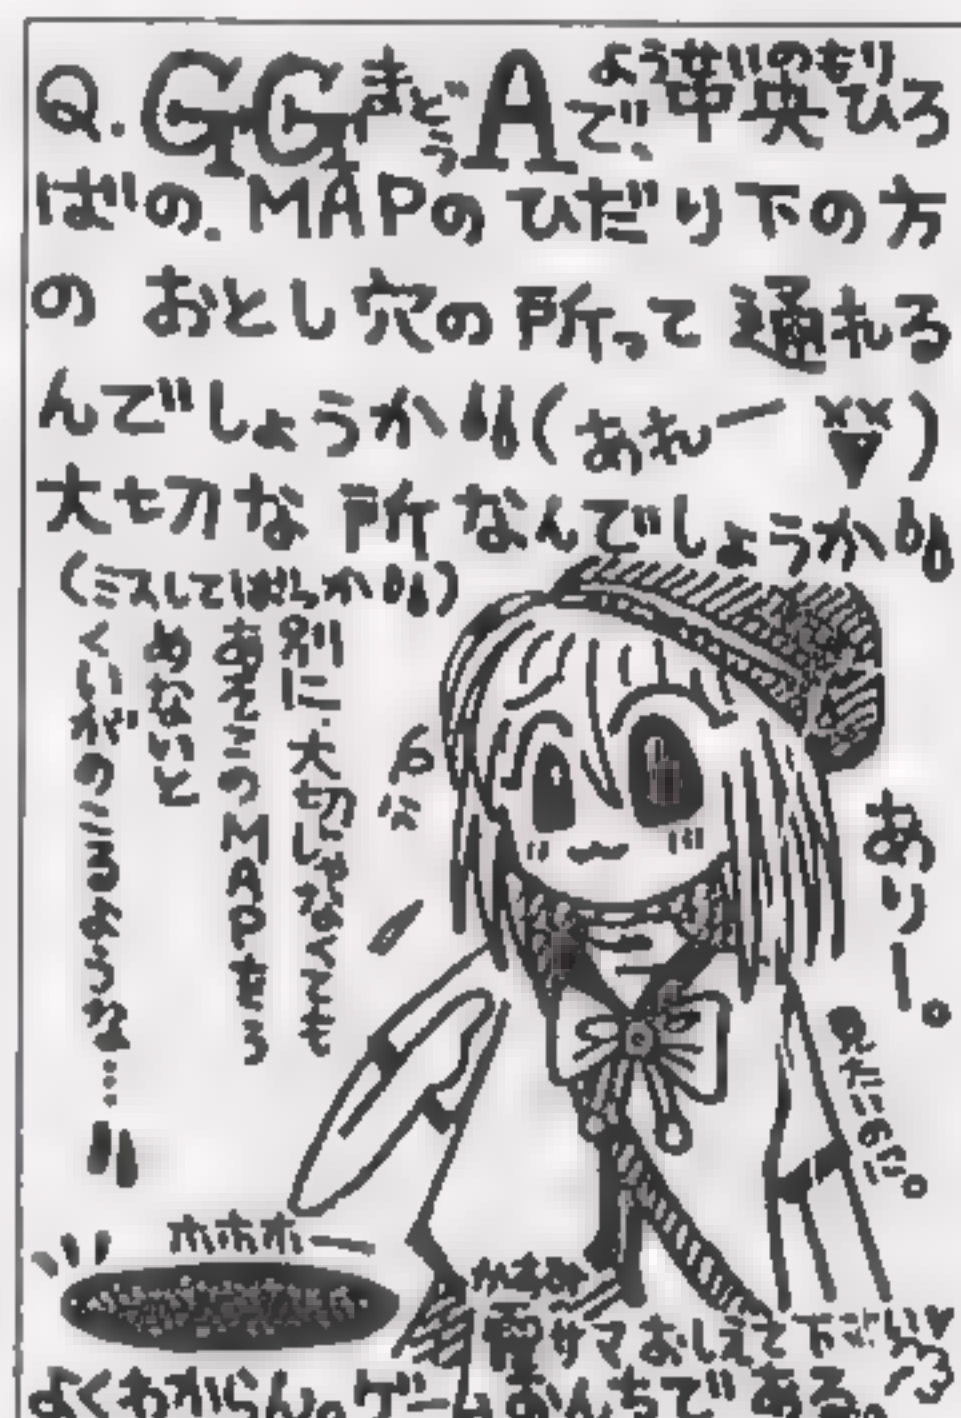 Q. GGまどうA で、中央ひろ
ようせいのもり
ばの.MAPのひだり下の方
の おとし穴の所って 通れる
んでしょうか!!(あれー ××)
大切な 所 なんでしょうか!!
(ミスしてばらか!!)
別に.大切じゃなくても
あそこのMAPをう
めないと
くいがのこるような…!!
あり一。
ホホホー
サマおしえて下さい♥
よくわからん。ゲームおんちである。